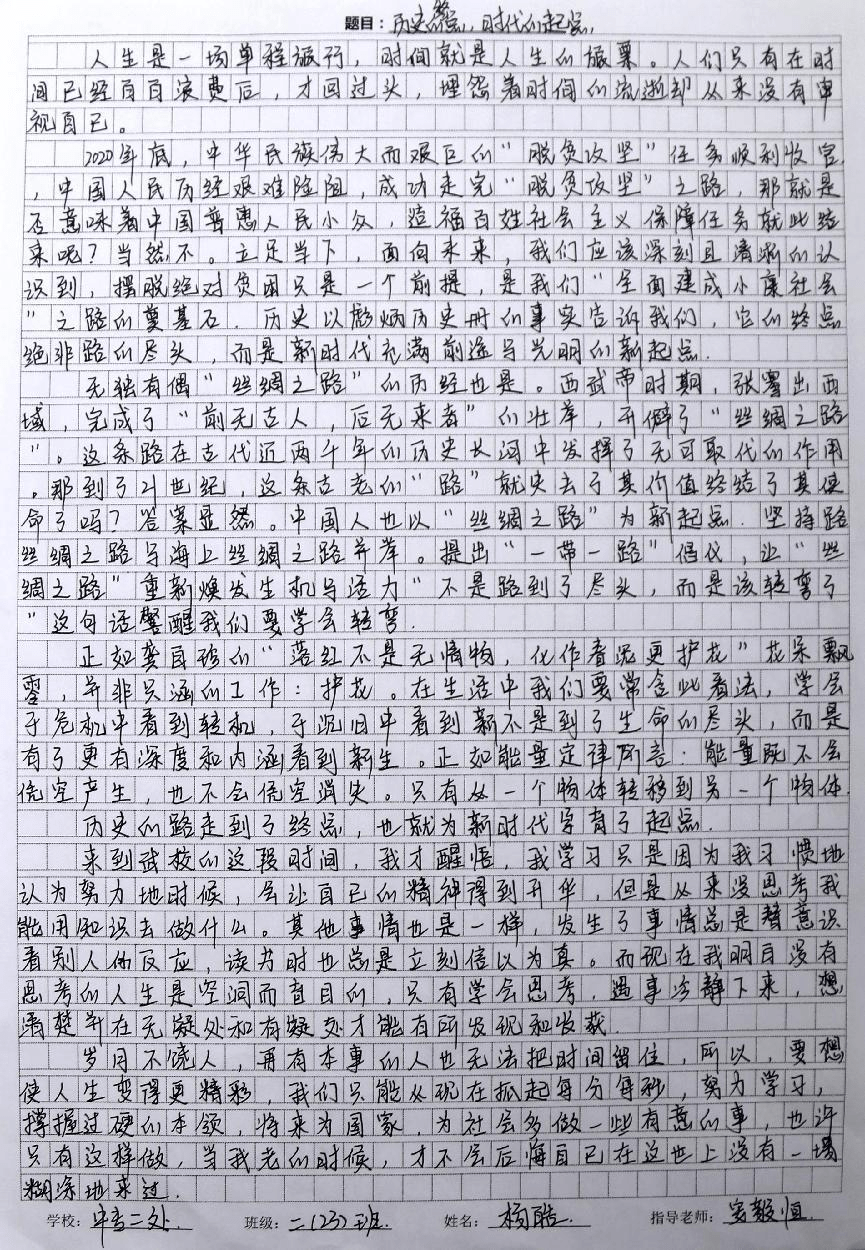 题目：历史的终点，时代的起点，
人生是一场单程旅行，时间就是人生的旅票。人们只有在时
间已经白白浪费后，才回过头，埋怨着时间的流逝却从来没有审
视自己。
2020年底，中华民族伟大而艰巨的“脱贫攻坚”任务顺利收官
，中国人民历经艰难险阻，成功走完“脱贫攻坚”之路，那就是
否意味着中国普惠人民小众，造福百姓社会主义保障任务就此结
束呢？当然不。立足当下，面向未来，我们应该深刻且清晰的认
识到，摆脱绝对贫困只是一个前提，是我们“全面建成小康社会
”之路的奠基石．历史以彪炳历史册的事实告诉我们，它的终点
绝非路的尽头，而是新时代充满前途与光明的新起点．
无独有偶“丝绸之路”的历经也是。西武帝时期，张骞出西
域，完成了“前无古人，后无来者”的壮举，开僻了“丝绸之路
”。这条路在古代近两千年的历史长河中发挥了无可取代的作用
。那到了21世纪，这条古老的“路”就失去了其价值终结了其使
命了吗？答案显然。中国人也以“丝绸之路”为新起点．坚持路
丝绸之路与海上丝绸之路并举。提出“一带一路”倡仪，让“丝
绸之路”重新焕发生机与活力“不是路到了尽头，而是该转弯了
”这句话警醒我们要学会转弯．
正如龚自珍的“落红不是无情物，化作春泥更护花”花朵飘
零，并非只涵的工作：护花。在生活中我们要常含此看法，学会
于危机中看到转机，于沉旧中看到新不是到了生命的尽头，而是
有了更有深度和内涵看到新生。正如能量定律所言：能量既不会
凭空产生，也不会凭空消失。只有从一个物体转移到另一个物体．
历史的路走到了终点，也就为新时代孕育了起点．
来到武校的这段时间，我才醒悟，我学习只是因为我习惯地
认为努力地时候，会让自己的精神得到升华，但是从来没思考我
能用知识去做什么。其他事情也是一样，发生了事情总是替意识
看别人的反应，读书时也总是立刻信以为真。而现在我明白没有
思考的人生是空洞而盲目的，只有学会思考，遇事冷静下来，想
清楚并在无凝处和有疑处才能有所发现和发获．
岁月不饶人，再有本事的人也无法把时间留住，所以，要想
使人生变得更精彩，我们只能从现在抓起每分每秒，努力学习，
撑握过硬的本领，将来为国家，为社会多做一些有意的事，也许
只有这样做，当我老的时候，才不会后悔自己在这世上没有一塌
糊涂地来过．
学校：中专二处． 班级：二（23）班． 姓名：杨酷． 指导老师：恒